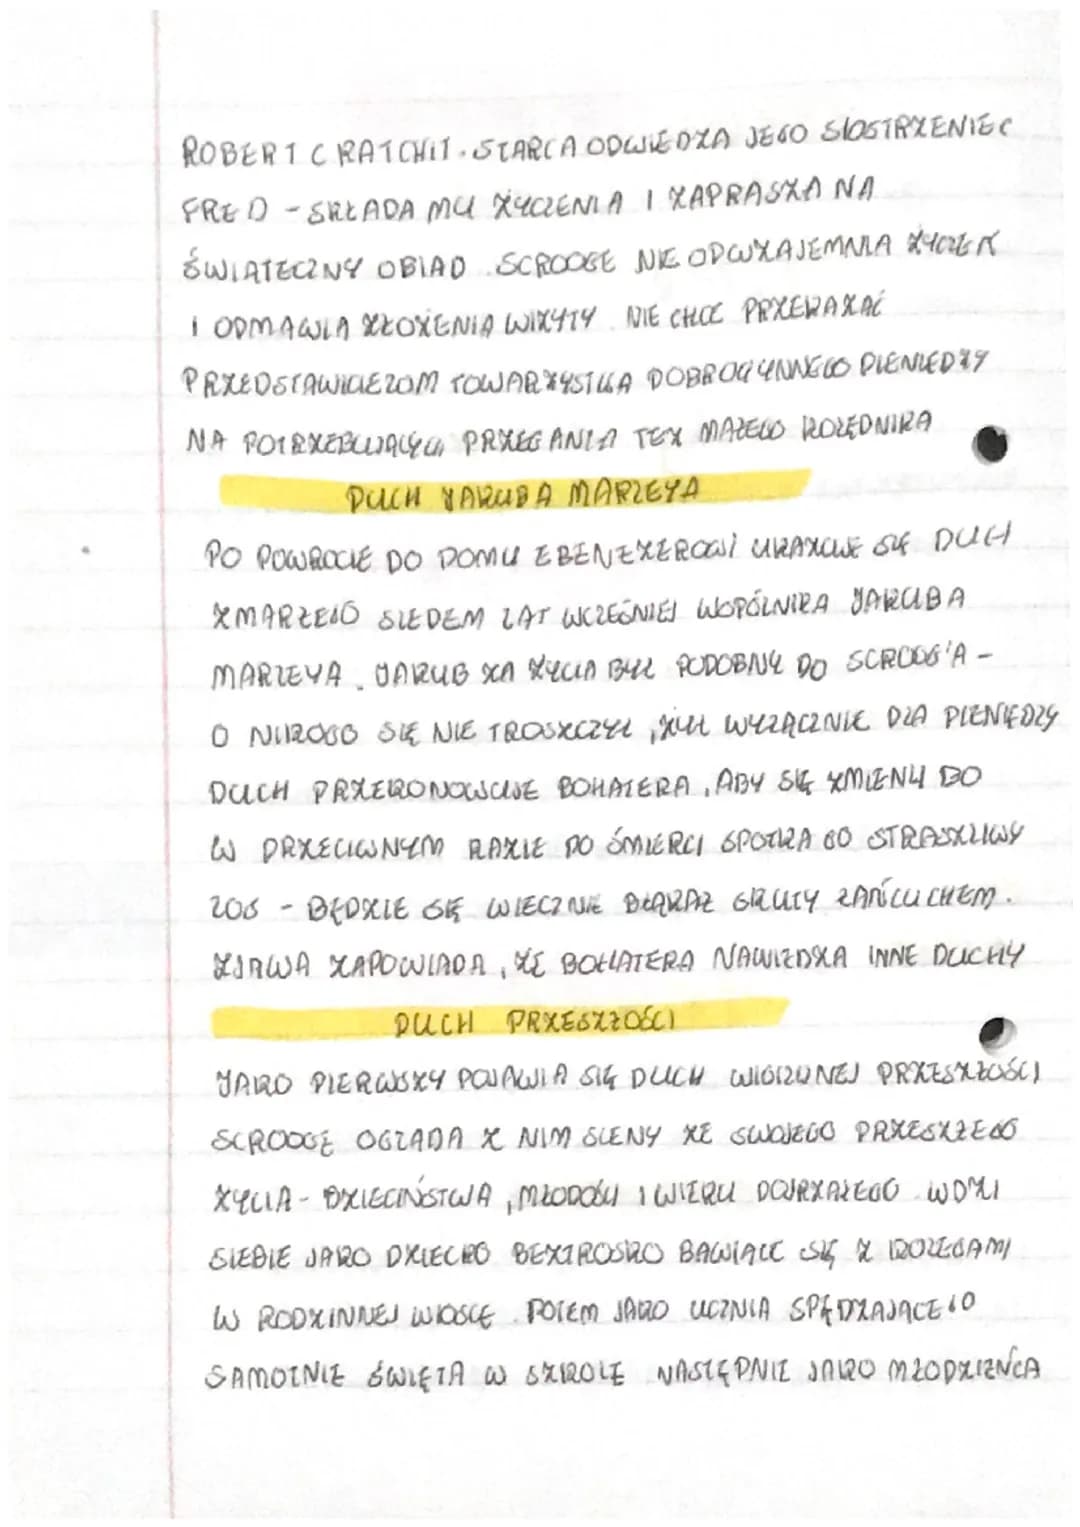 ROBERT CRATCHIT. STARCA ODWIEDZA JEGO SIOSTRZENIEC
FRED - SKŁADA MU ŻYCZENIA I ZAPRASZA NA
ŚWIĄTECZNY OBIAD. SCROOGE NIE ODWZAJEMNIA ŻYCZEŃ
I ODMAWIA ZŁOŻENIA WIZYTY. NIE CHCE PRZEKAZAĆ
PRZEDSTAWICIELOM TOWARZYSTWA DOBROCZYNNEGO PIENIĘDZY
NA POTRZEBUJĄCYCH PRZEGANIA TEŻ MAŁEGO KOLĘDNIKA
DUCH JAKUBA MARLEYA
PO POWROCIE DO DOMU EBENEZEROWI UKAZUJE SIĘ DUCH
ZMARŁEGO SIEDEM LAT WCZEŚNIEJ WSPÓLNIKA JAKUBA
MARLEYA. JAKUB ZA ŻYCIA BYŁ PODOBNY DO SCROOG'A -
O NIKOGO SIĘ NIE TROSZCZYŁ, ŻYŁ WYŁĄCZNIE DLA PIENIĘDZY
DUCH PRZEKONOWUJE BOHATERA, ABY SIĘ ZMIENIŁ BO
W PRZECIWNYM RAZIE PO ŚMIERCI SPOTKA GO STRASZLIWY
LOS - BĘDZIE SIĘ WIECZNIE BŁĄKAŁ SKUTY ŁAŃCUCHEM.
ZJAWA ZAPOWIADA, ŻE BOHATERA NAWIEDZA INNE DUCHY
DUCH PRZESZŁOŚCI
JAKO PIERWSZY POJAWIA SIĘ DUCH WIGILIJNEJ PRZESZŁOŚCI
SCROOGE OGLADA Z NIM SCENY ZE SWOJEGO PRZESZŁEGO
ŻYCIA - DZIECIŃSTWA, MŁODOŚCI I WIEKU DOJRZAŁEGO. WIDZI
SIEBIE JAKO DZIECKO BEZTROSKO BAWIĄCE SIĘ Z KOLEGAMI
W RODZINNEJ WIOSCE. POTEM JAKO UCZNIA SPĘDZAJĄCEGO
SAMOTNIE ŚWIĘTA W SZKOLE NASTĘPNIE JAKO MŁODZIEŃCA